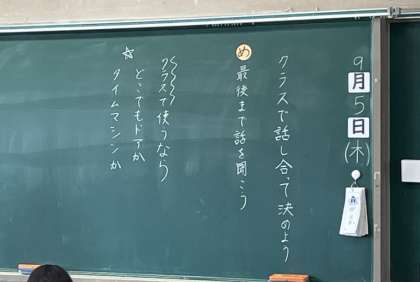 9月5日(木)
クラスで話し合って決めよう
め 最後まで話を聞こう
クラスで使うなら
どこでもドアか
タイムマシンか